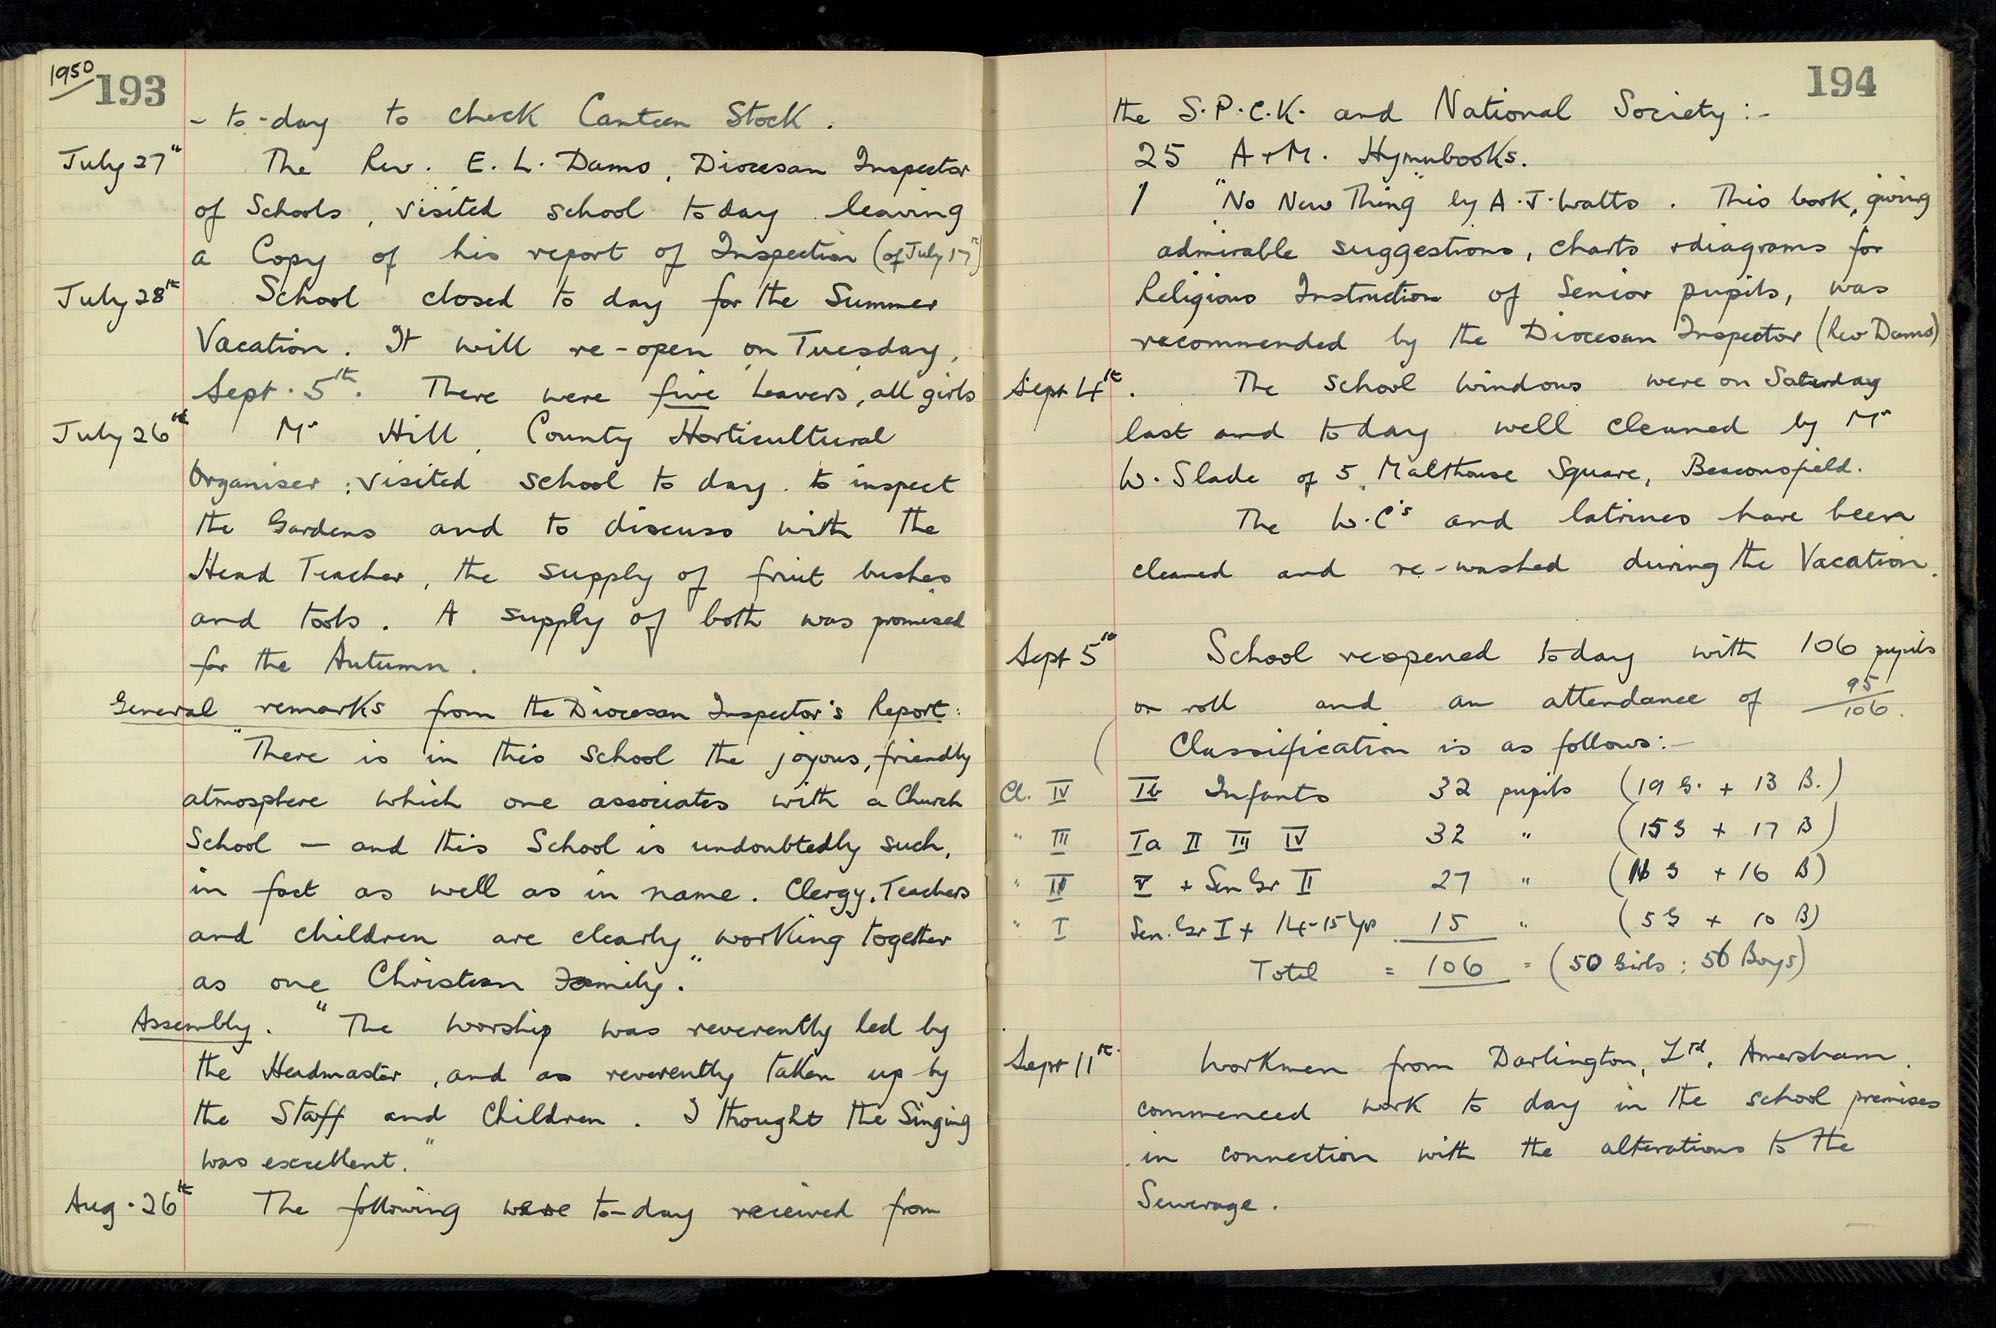 1950
193
- to-day to check Canteen Stock.
July 27th The Rev. E. L. Dams, Diocesan Inspector
of Schools, visited school today leaving
a Copy of his report of Inspection (of July 17th)
July 28th School closed to day for the Summer
Vacation. It will re-open on Tuesday,
Sept. 5th. There were five leavers, all girls
July 26th Mr Hill, County Horticultural
Organiser; visited school to day. to inspect
the Gardens and to discuss with the
Head Teacher, the supply of fruit bushes
and tools. A supply of both was promised
for the Autumn.
General remarks from the Diocesan Inspector's Report:
"There is in this School the joyous, friendly
atmosphere which one associates with a Church
School — and this School is undoubtedly such,
in fact as well as in name. Clergy, Teachers
and children are clearly working together
as one Christian Family."
Assembly. "The worship was reverently led by
the Headmaster, and as reverently taken up by
the Staff and Children. I thought the Singing
was excellent."
Aug. 26th The following were to-day received from
194
the S.P.C.K. and National Society:-
25 A+M. Hymnbooks.
1 "No New Thing" by A.J. Watts. This book, giving
admirable suggestions, charts + diagrams for
Religious Instruction of Senior pupils, was
recommended by the Diocesan Inspector (Rev Dams)
Sept 4th. The school windows were on Saturday
last and today well cleaned by Mr
W. Slade of 5, Malthouse Square, Beaconsfield.
The W.C's and latrines have been
cleaned and re-washed during the Vacation.
Sept 5th School reopened today with 106 pupils
on roll and an attendance of 95/106.
( Classification is as follows:-
Cl. IV Ib Infants 32 pupils (19 G. + 13 B.)
" III Ia II III IV 32 " (15 G + 17 B)
" II V + Sen Gr II 27 " (11 G + 16 B)
" I Sen. Gr I + 14-15 yrs 15 " (5 G + 10 B)
Total = 106 = (50 Girls; 56 Boys)
Sept 11th. Workmen from Darlington, Ltd, Amersham.
commenced work to day in the school premises
in connection with the alterations to the
Sewerage.